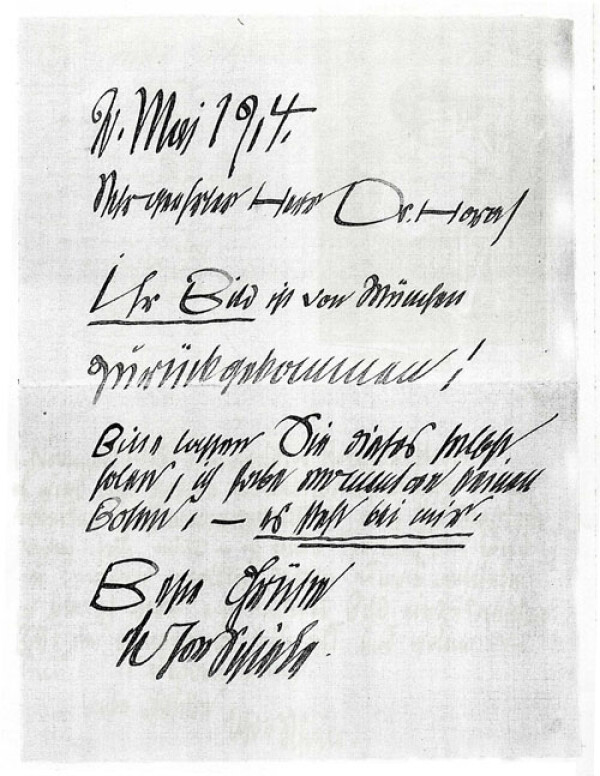 2. Mai 1914.
Sehr geehrter Herr Dr.
Ihr Bild ist von München
zurückgekommen!
Bitte lassen Sie dieses selbst
holen, ich habe momentan keinen
Boten. — es steht bei mir.
Beste Grüße
Egon Schiele.